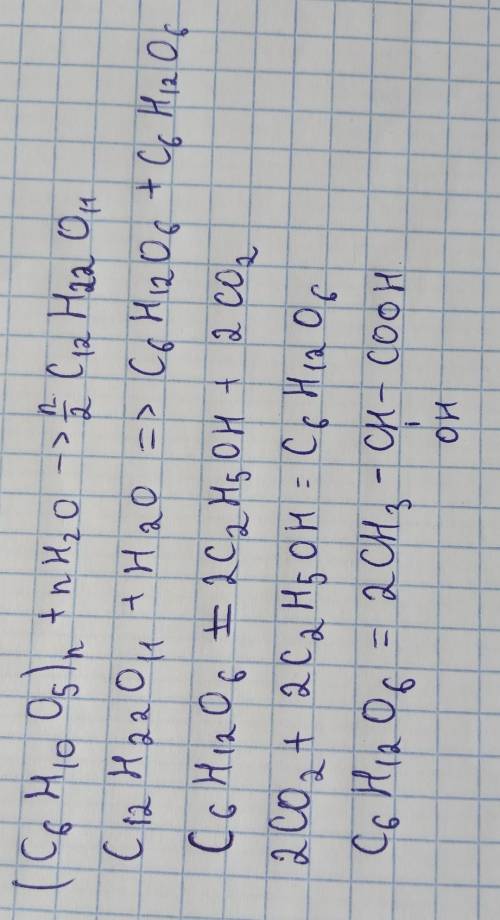 (C₆H₁₀O₅)ₙ + nH₂O -> n/2 C₁₂H₂₂O₁₁
C₁₂H₂₂O₁₁ + H₂O => C₆H₁₂O₆ + C₆H₁₂O₆
C₆H₁₂O₆ = 2C₂H₅OH + 2CO₂
2CO₂ + 2C₂H₅OH = C₆H₁₂O₆
C₆H₁₂O₆ = 2CH₃ - CH - COOH
OH